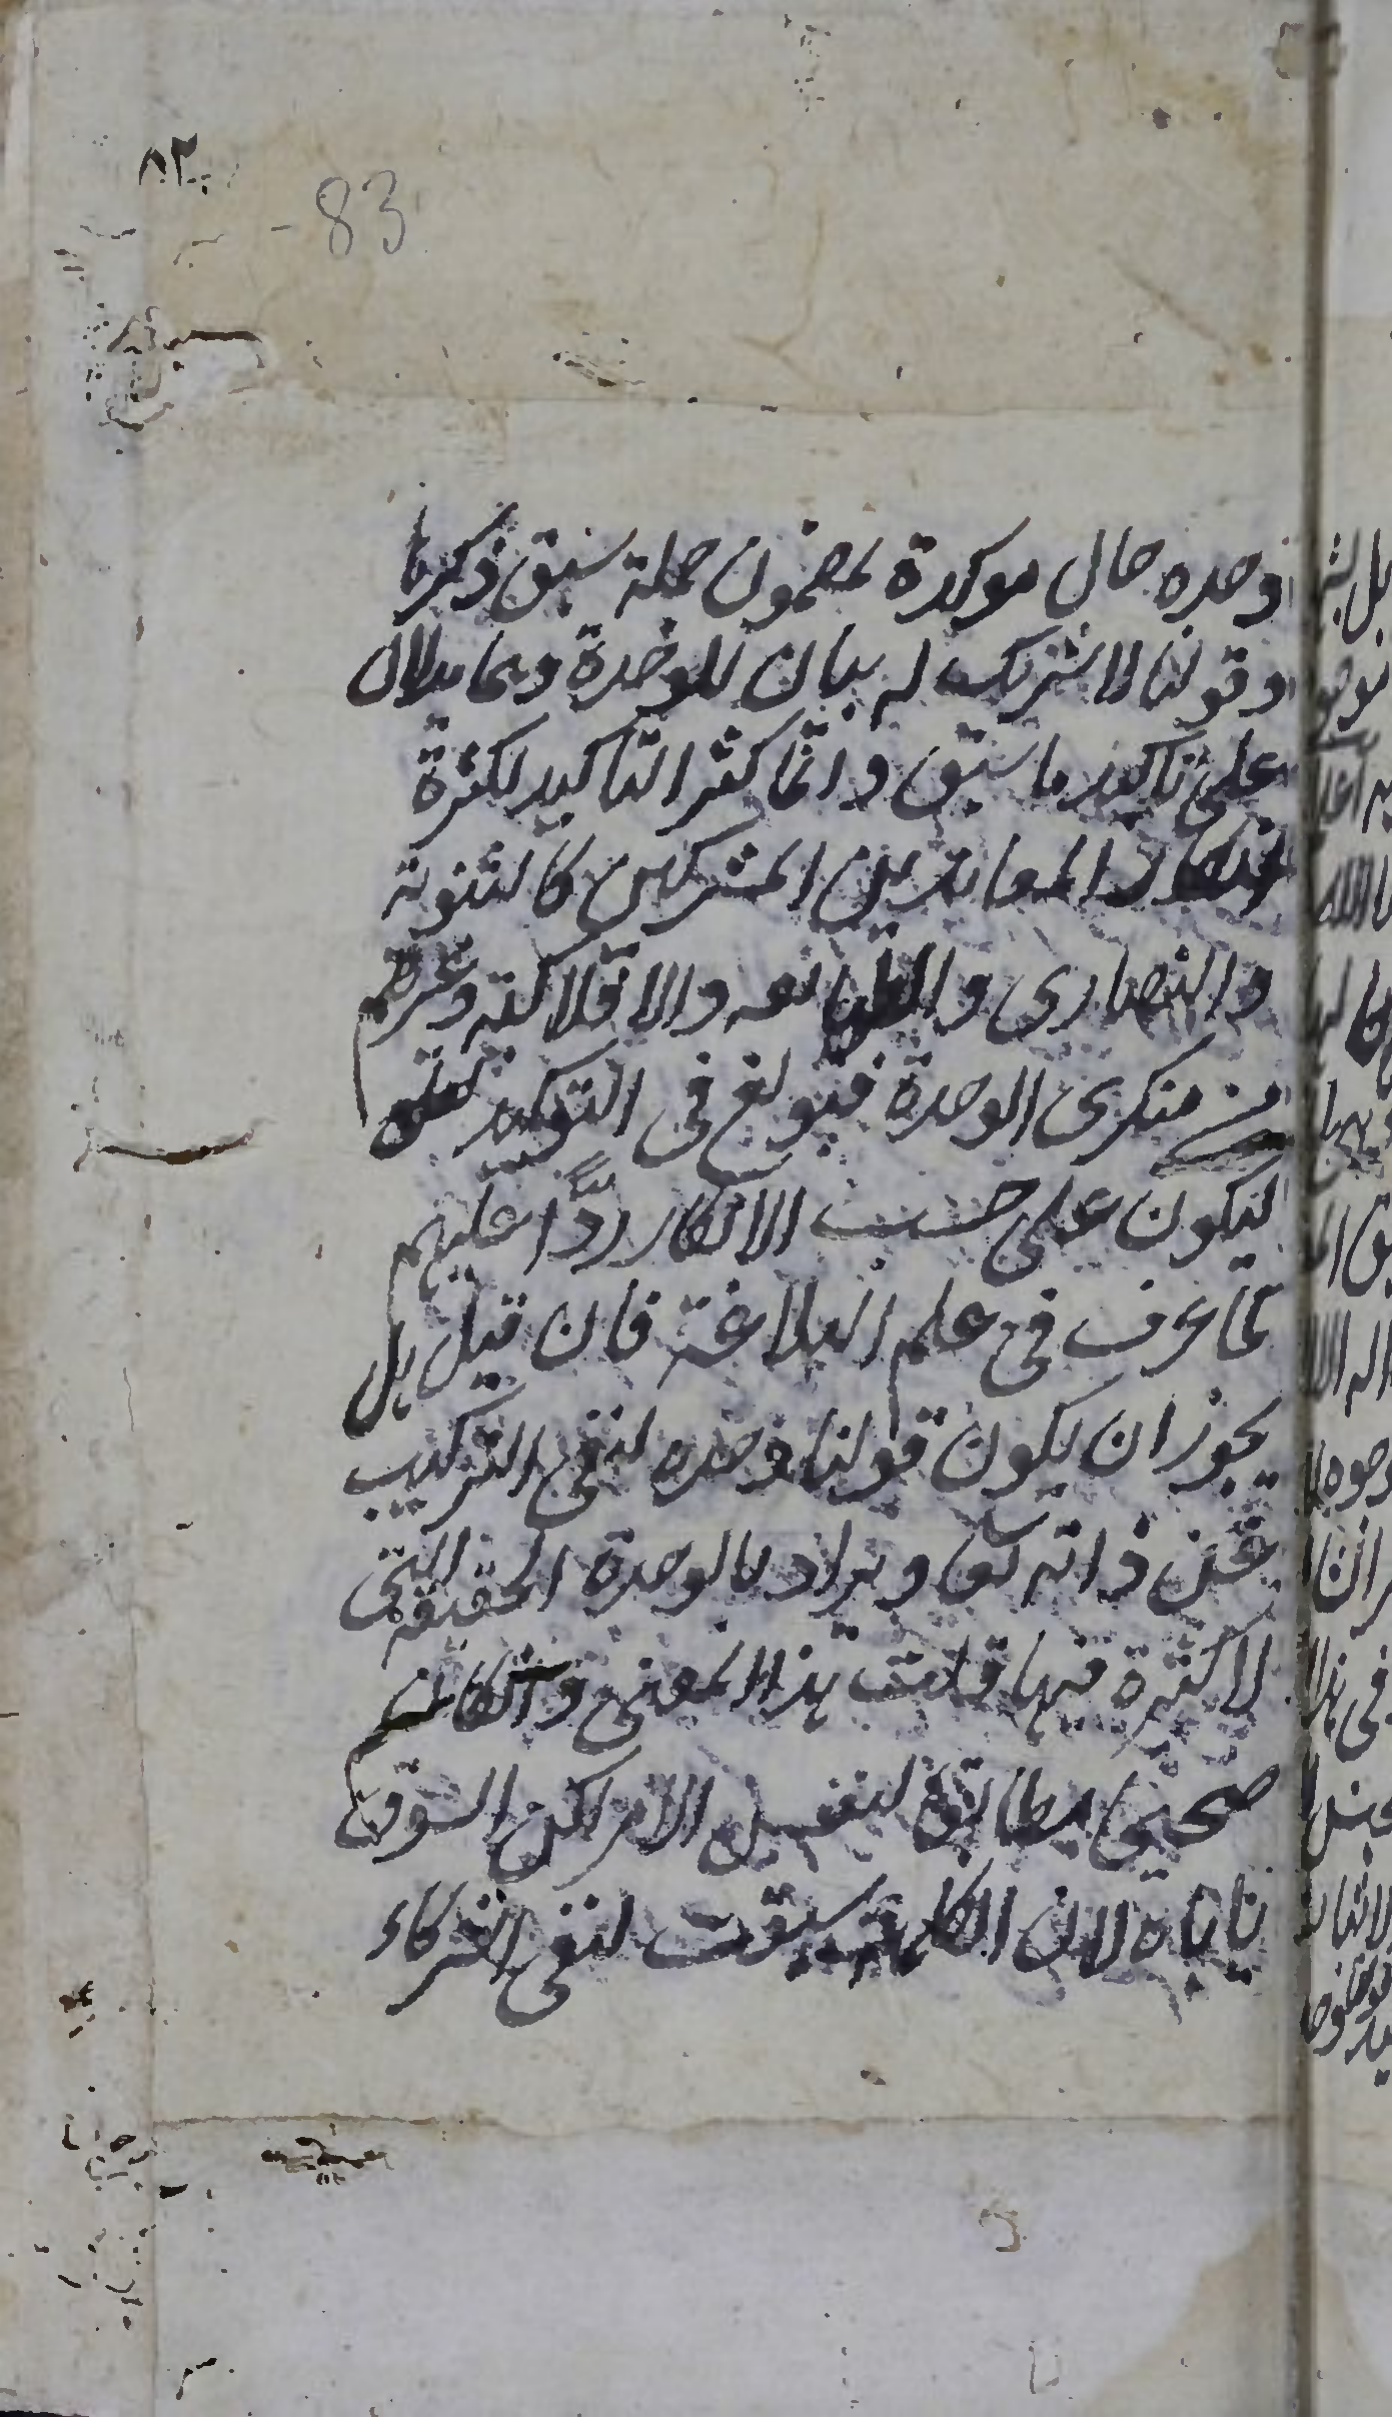 ٨٣
83
وحده حال موكدة لمضمون جملة سبق ذكرها
وقولنا لا شريك له بيان للوحدة وهما يدلان
على تاكيد ما سبق وانما كثر التاكيد لكثرة
المعاندين المشركين كالثنوية
والنصارى والطبائعيه والافلاكية وغيرهم
من منكرى الوحدة فبولغ فى التوكيد
ليكون على حسب الانكار ردًّا عليهم
كما عرف فى علم البلاغة فان قيل هل
يجوز ان يكون قولنا وحده لنفى التركيب
عن ذاته تعا ويراد بالوحدة الحقيقة التى
لا كثرة فيها قلت هذا المعنى وان كان
صحيحا مطابقا لنفس الامر لكن السوق
ياباه لان الكلمة سيقت لنفى الشركاء